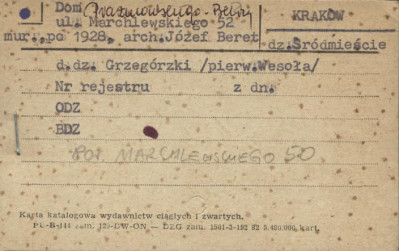 Dom Prażmowskiego - Beliny
ul. Marchlewskiego 52
mur., po 1928, arch. Józef Beret
KRAKÓW
dz. Śródmieście
d.dz. Grzegórzki /pierw. Wesoła/
Nr rejestru z dn.
ODZ
BDZ
POR. MARCHLEWSKIEGO 50
Karta katalogowa wydawnictw ciągłych i zwartych.
Pu-B-144 zam. 129-DW-ON — DZG zam. 1561-3-192 82 5.400.000 kart.